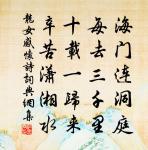 海门连洞庭
每去三千里
十载一归来
辛苦潇湘水
龙女感怀诗词典网集